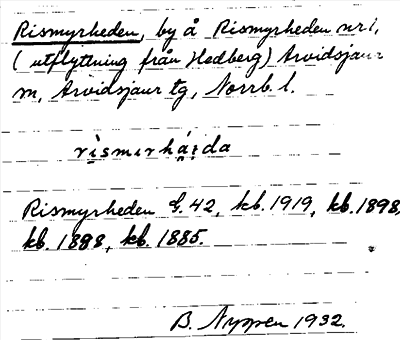 Rismyrheden, by å Rismyrheden nr 1,
(utflyttning från Hedberg) Arvidsjaur
sn, Arvidsjaur tg, Norrb. l.
rismırhá̤i̯da
Rismyrheden G. 42, kb. 1919, kb. 1898,
kb. 1888, kb. 1885.
B. Nyppen 1932.